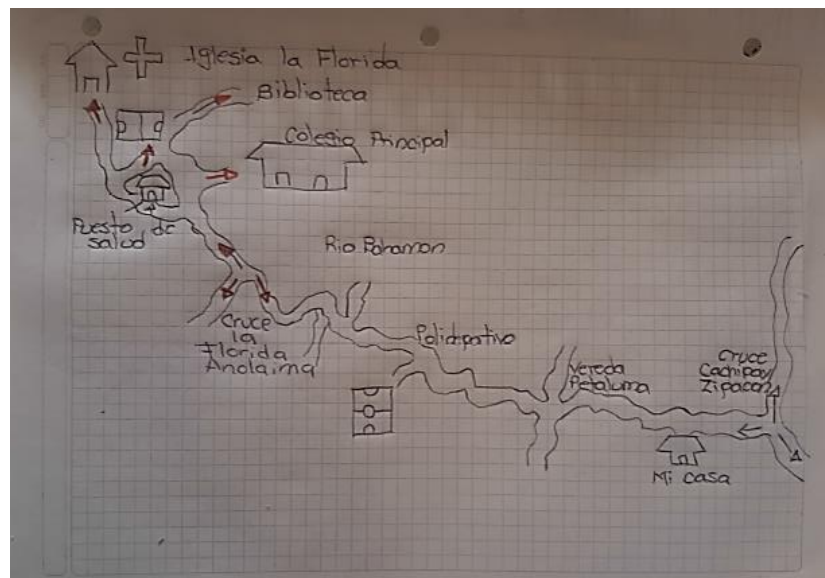 Iglesia la Florida
Biblioteca
Colegio Principal
Puesto de
salud
Rio Bahamon
Cruce
la
Florida
Anolaima
Polideportivo
Vereda
Petaluma
Cruce
Cachipay
Zipacon
Mi casa